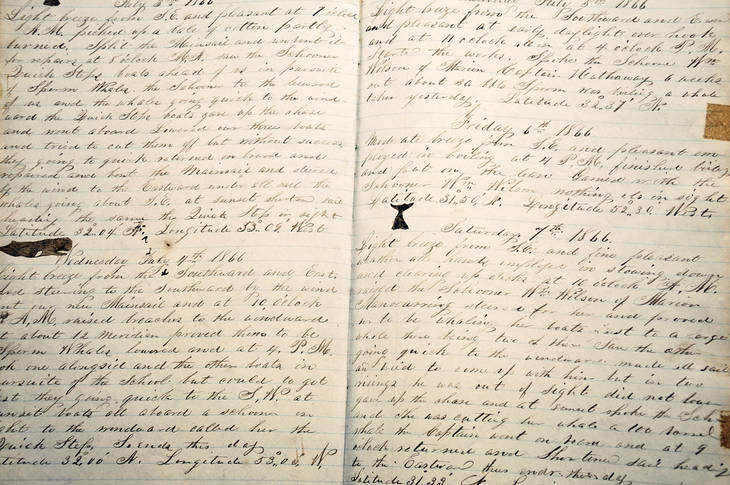 July 3rd 1866
Light breeze from S.E. and pleasant at
A.M. picked up a bale of cotton partly
burned. Split the Mainsail and unbent it
for repairs at 8 oclock A.M. saw the Schooner
Quick Step boats ahead of us in pursuite
Sperm Whales the Schooner to the leeward
of us and the whales going quick to the wind
ward the Quick Step boats gave up the chase
and went aboard Lowered our three boats
and tried to cut them off but without success
they going to quick returned on board and
repaired and bent the Mainsail and steered
by the wind to the Eastward under all sail the
whales going about S.E. at sunset shortened sail
heading the same the Quick Step in sight
Latitude 32.04 N. Longitude 53.02 West
Wednesday July 4th 1866
Light breeze from the Southward and East
and steering to the Southward by the wind
our new Mainsail and at 10 oclock
A.M. raised breaches to the windward
at about 12 Meridian proved them to be
Sperm Whales lowered and at 4 P.M.
one alongside and the other boats in
pursuite of the School but could to get
they going quick to the S.W. at
sunset boats all aboard a schooner in
to the windward called her the
Quick Step So ends this day
Latitude 32.00 N. Longitude 53.00 W.
July 5th 1866
Light breeze from the Southward and
and pleasant at early daylight
and at 4 oclock P.M.
the works. Spoke the Schooner Wm
Wilson of Marion Captain Hathaway 6 weeks
out about 50 bbls Sperm was boiling a whale
yesterday. Latitude 32.37 N.
Friday 6th 1866
Moderate breeze from S.E. and pleasant em
ployed in boiling at 4 P.M. finished
and put on the
Schooner Wm Wilson nothing in sight
Latitude 31.56 N. Longitude 52.30 West
Saturday 7th 1866.
Light breeze from S.E. and fine pleasant
weather all hands employed in stowing down
and clearing up decks at 10 oclock A.M.
raised the Schooner Wm Wilson of Marion
steered for her and proved
to be whaling her boats fast to a large
whale there being two of them saw the other
going quick to the windward made all sail
and tried to come up with him but in two
he was out of sight did not lower
gave up the chase and at sunset spoke the Sch
and she was cutting her whale a 100 barrel
whale the Captain went on board and at 9
oclock returned and shortened sail heading
to the Eastward thus ends the day
Latitude 31.33 N.